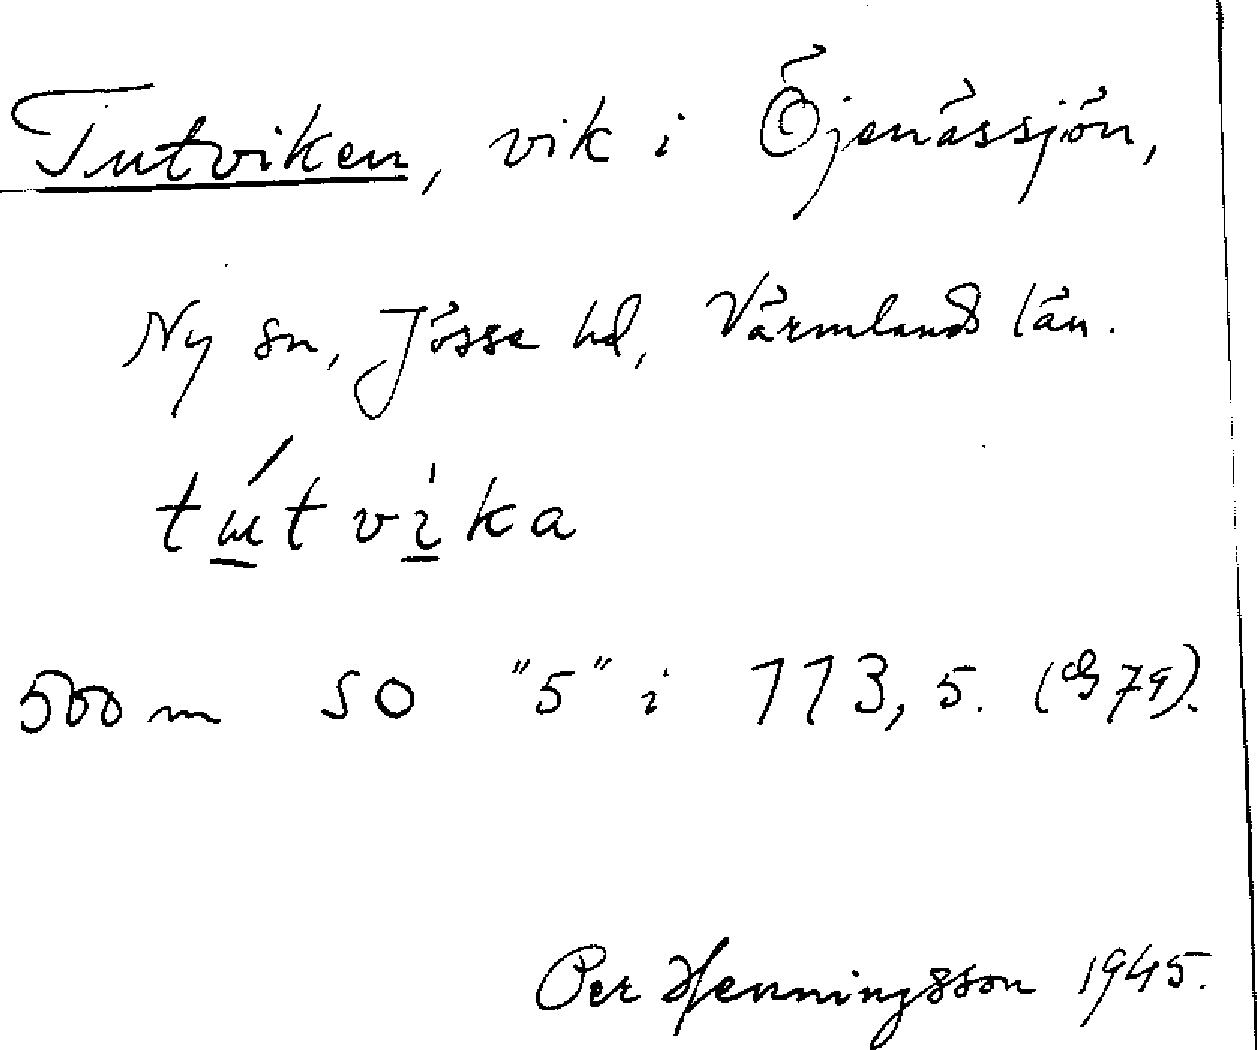 Tutviken, vik i Öjenässjön,
Ny sn, Jösse hd, Värmlands län.
tútvìka
500 m SO "5" i 113,5. (G79).
Per Henningsson 1945.